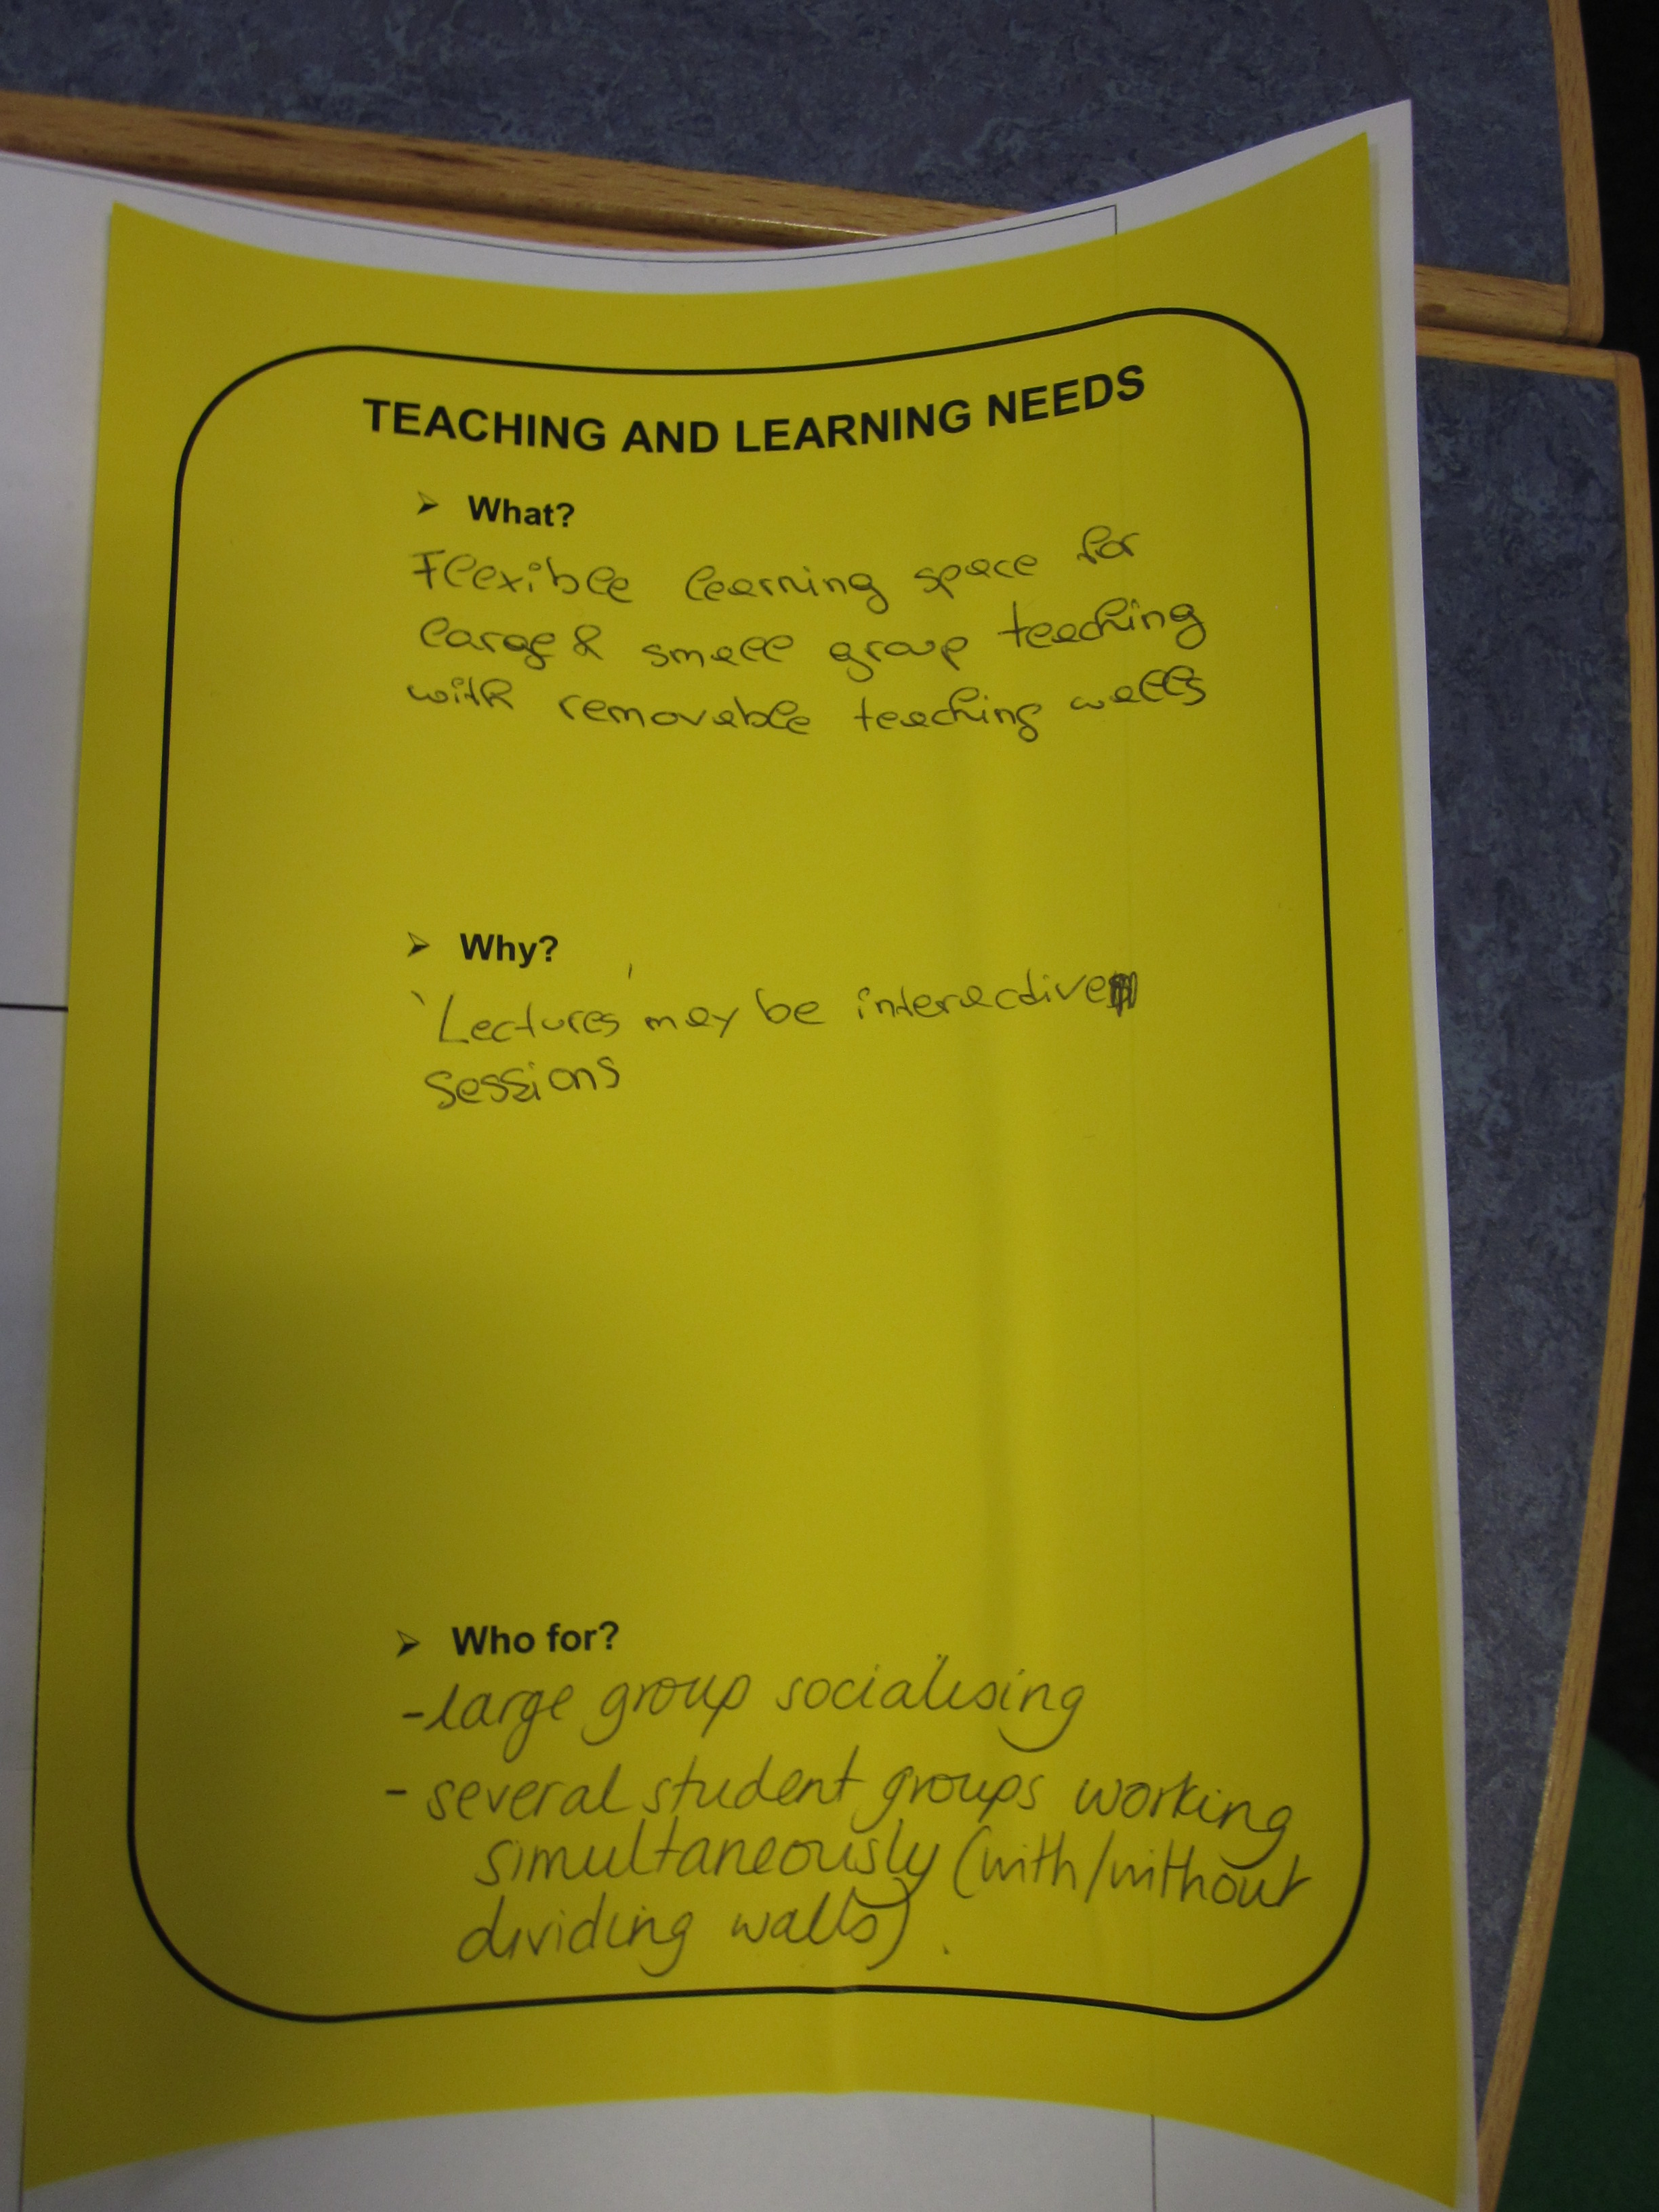 TEACHING AND LEARNING NEEDS
➢ What?
Flexible learning space for
large & small group teaching
with removable teaching walls
➢ Why?
'Lectures' may be interactive
sessions
➢ Who for?
-large group socialising
- several student groups working
simultaneously (with/without
dividing walls).